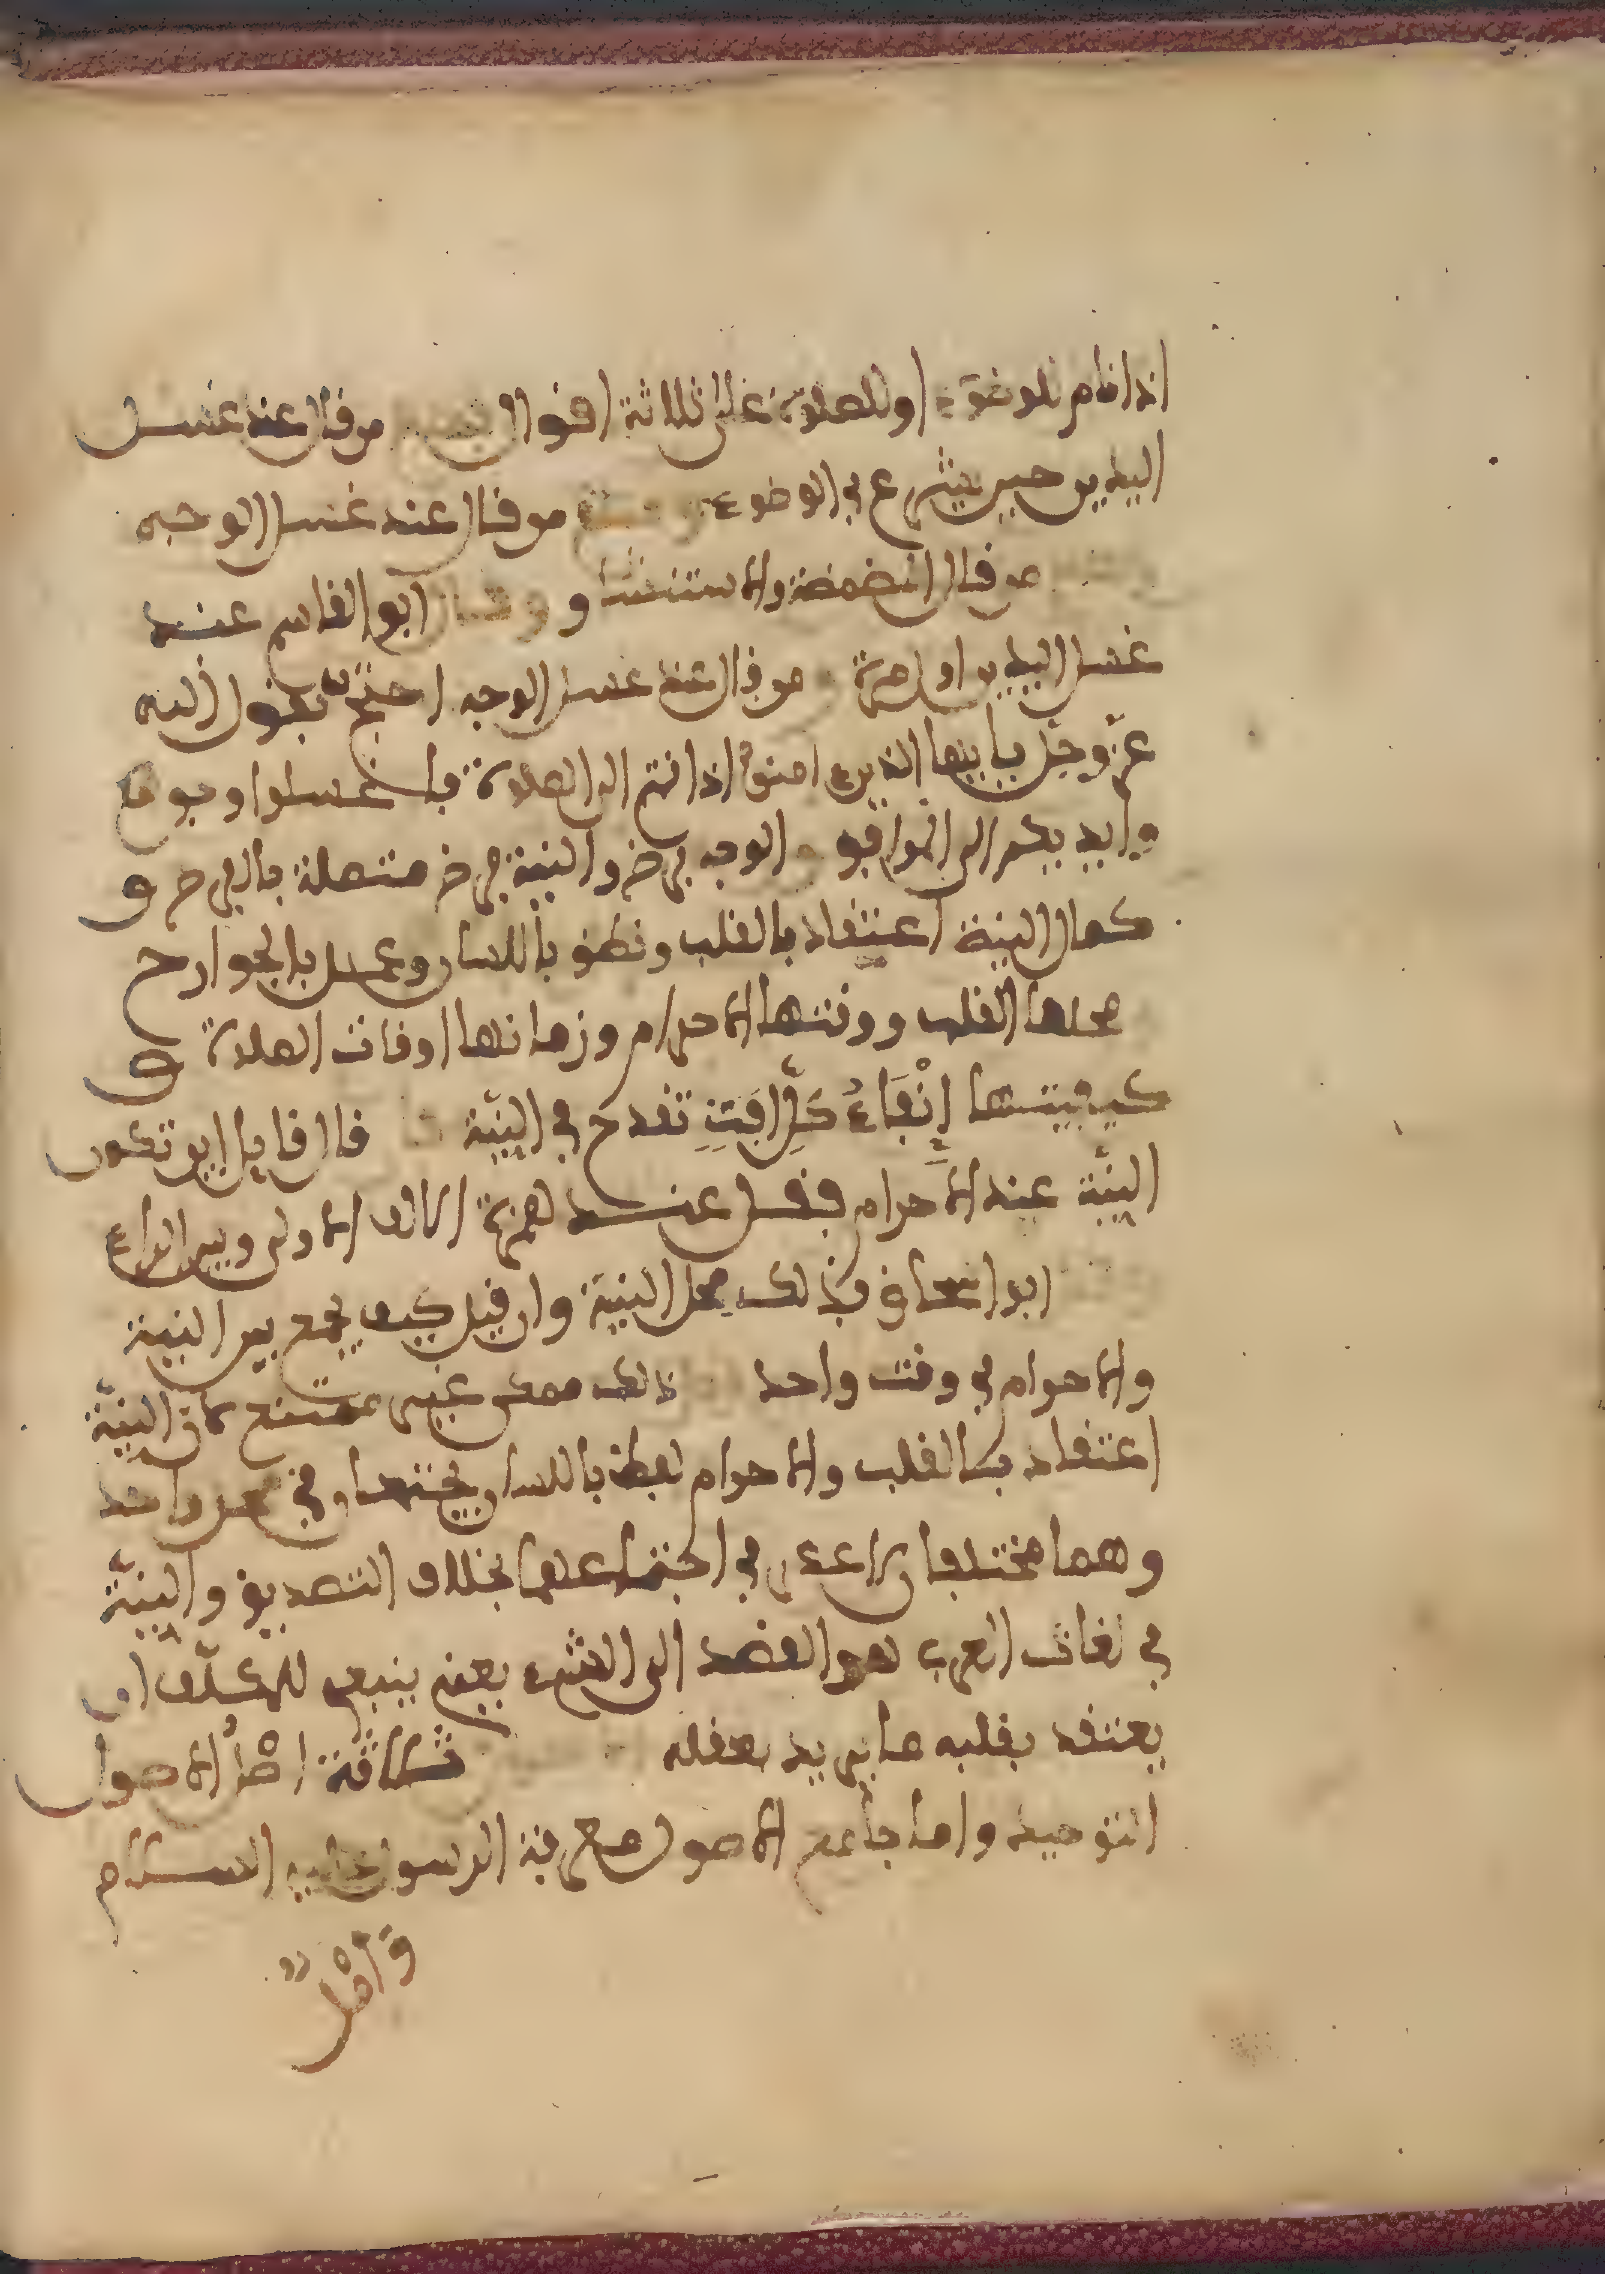 اذا قام للوضوء او للصلوة على ثلاثة اقوال من قال عند غسل
اليدين حين يشرع في الوضوء من قال عند غسل الوجه
من قال المضمضة والاستنشاق وقال ابو القاسم عند
غسل اليدين اول مرة من قال عند غسل الوجه احتج بقول الله
عز وجل يا ايها الذين امنوا اذا قمتم الى الصلوة فاغسلوا وجوهكم
وايديكم الى المرافق والوجه فرض والنية فرض متصلة بالفرض و
كمال النية اعتقاد بالقلب ونطق باللسان وعمل بالجوارح
محلها القلب ووقتها الاحرام وزمانها اوقات الصلوة و
كيفيتها إنْقَاءُ كلِّ افَتٍ تقدح في النيّة قال قايل اين تكون
النيّة عند الاحرام فقل عند همزة الالف الاولى وبين الراء
ابو اسحاق وذالك محل النية وان قيل كيف يجمع بين النية
والاحرام في وقت واحد ذالك ممكن غير ممتنع لان النيّة
اعتقاد بالقلب والاحرام لفظ باللسان يجتمعان في محل واحد
وهما مختلفان في اجتماعهما بخلاف التصديق والنيّة
في لغات العرب هو القصد الى الشيء يعني ينبغي للمكلّف ان
يعتقد بقلبه ما يريد بعقله ثلاثة اصل الاصول
التوحيد واما جامع الاصول معرفة الرسول عليه السلام